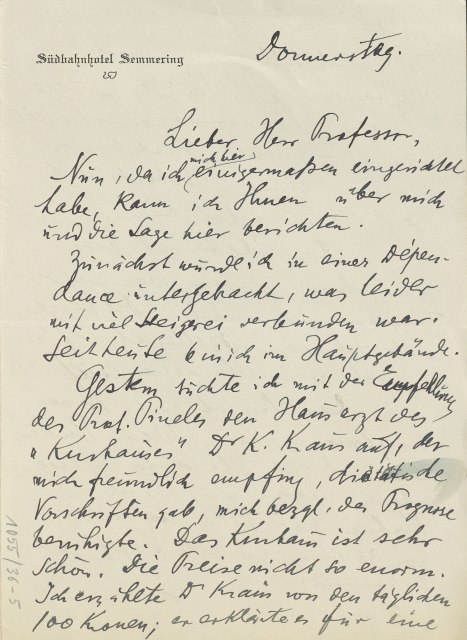 Südbahnhotel Semmering
Donnerstag.
Lieber Herr Professor,
Nun, da ich mich hier einigermaßen eingerichtet
habe, kann ich Ihnen über mich
und die Lage hier berichten.
Zunächst wurde ich in einer Dépen-
dance untergebracht, was leider
mit viel Steigerei verbunden war.
Seit heute bin ich im Hauptgebäude.
Gestern suchte ich mit der Empfellung
des Prof. Pineles den Hausarzt des
„Kurhauses" Dr K. Kraus auf, der
mich freundlich empfing, diätätische
Vorschriften gab, mich bezgl. der Prognose
beruhigte. Das Kurhaus ist sehr
schön. Die Preise nicht so enorm.
Ich erzählte Dr Kraus von den tägliden
100 Kronen; er erklärte es für eine
1055/36-5